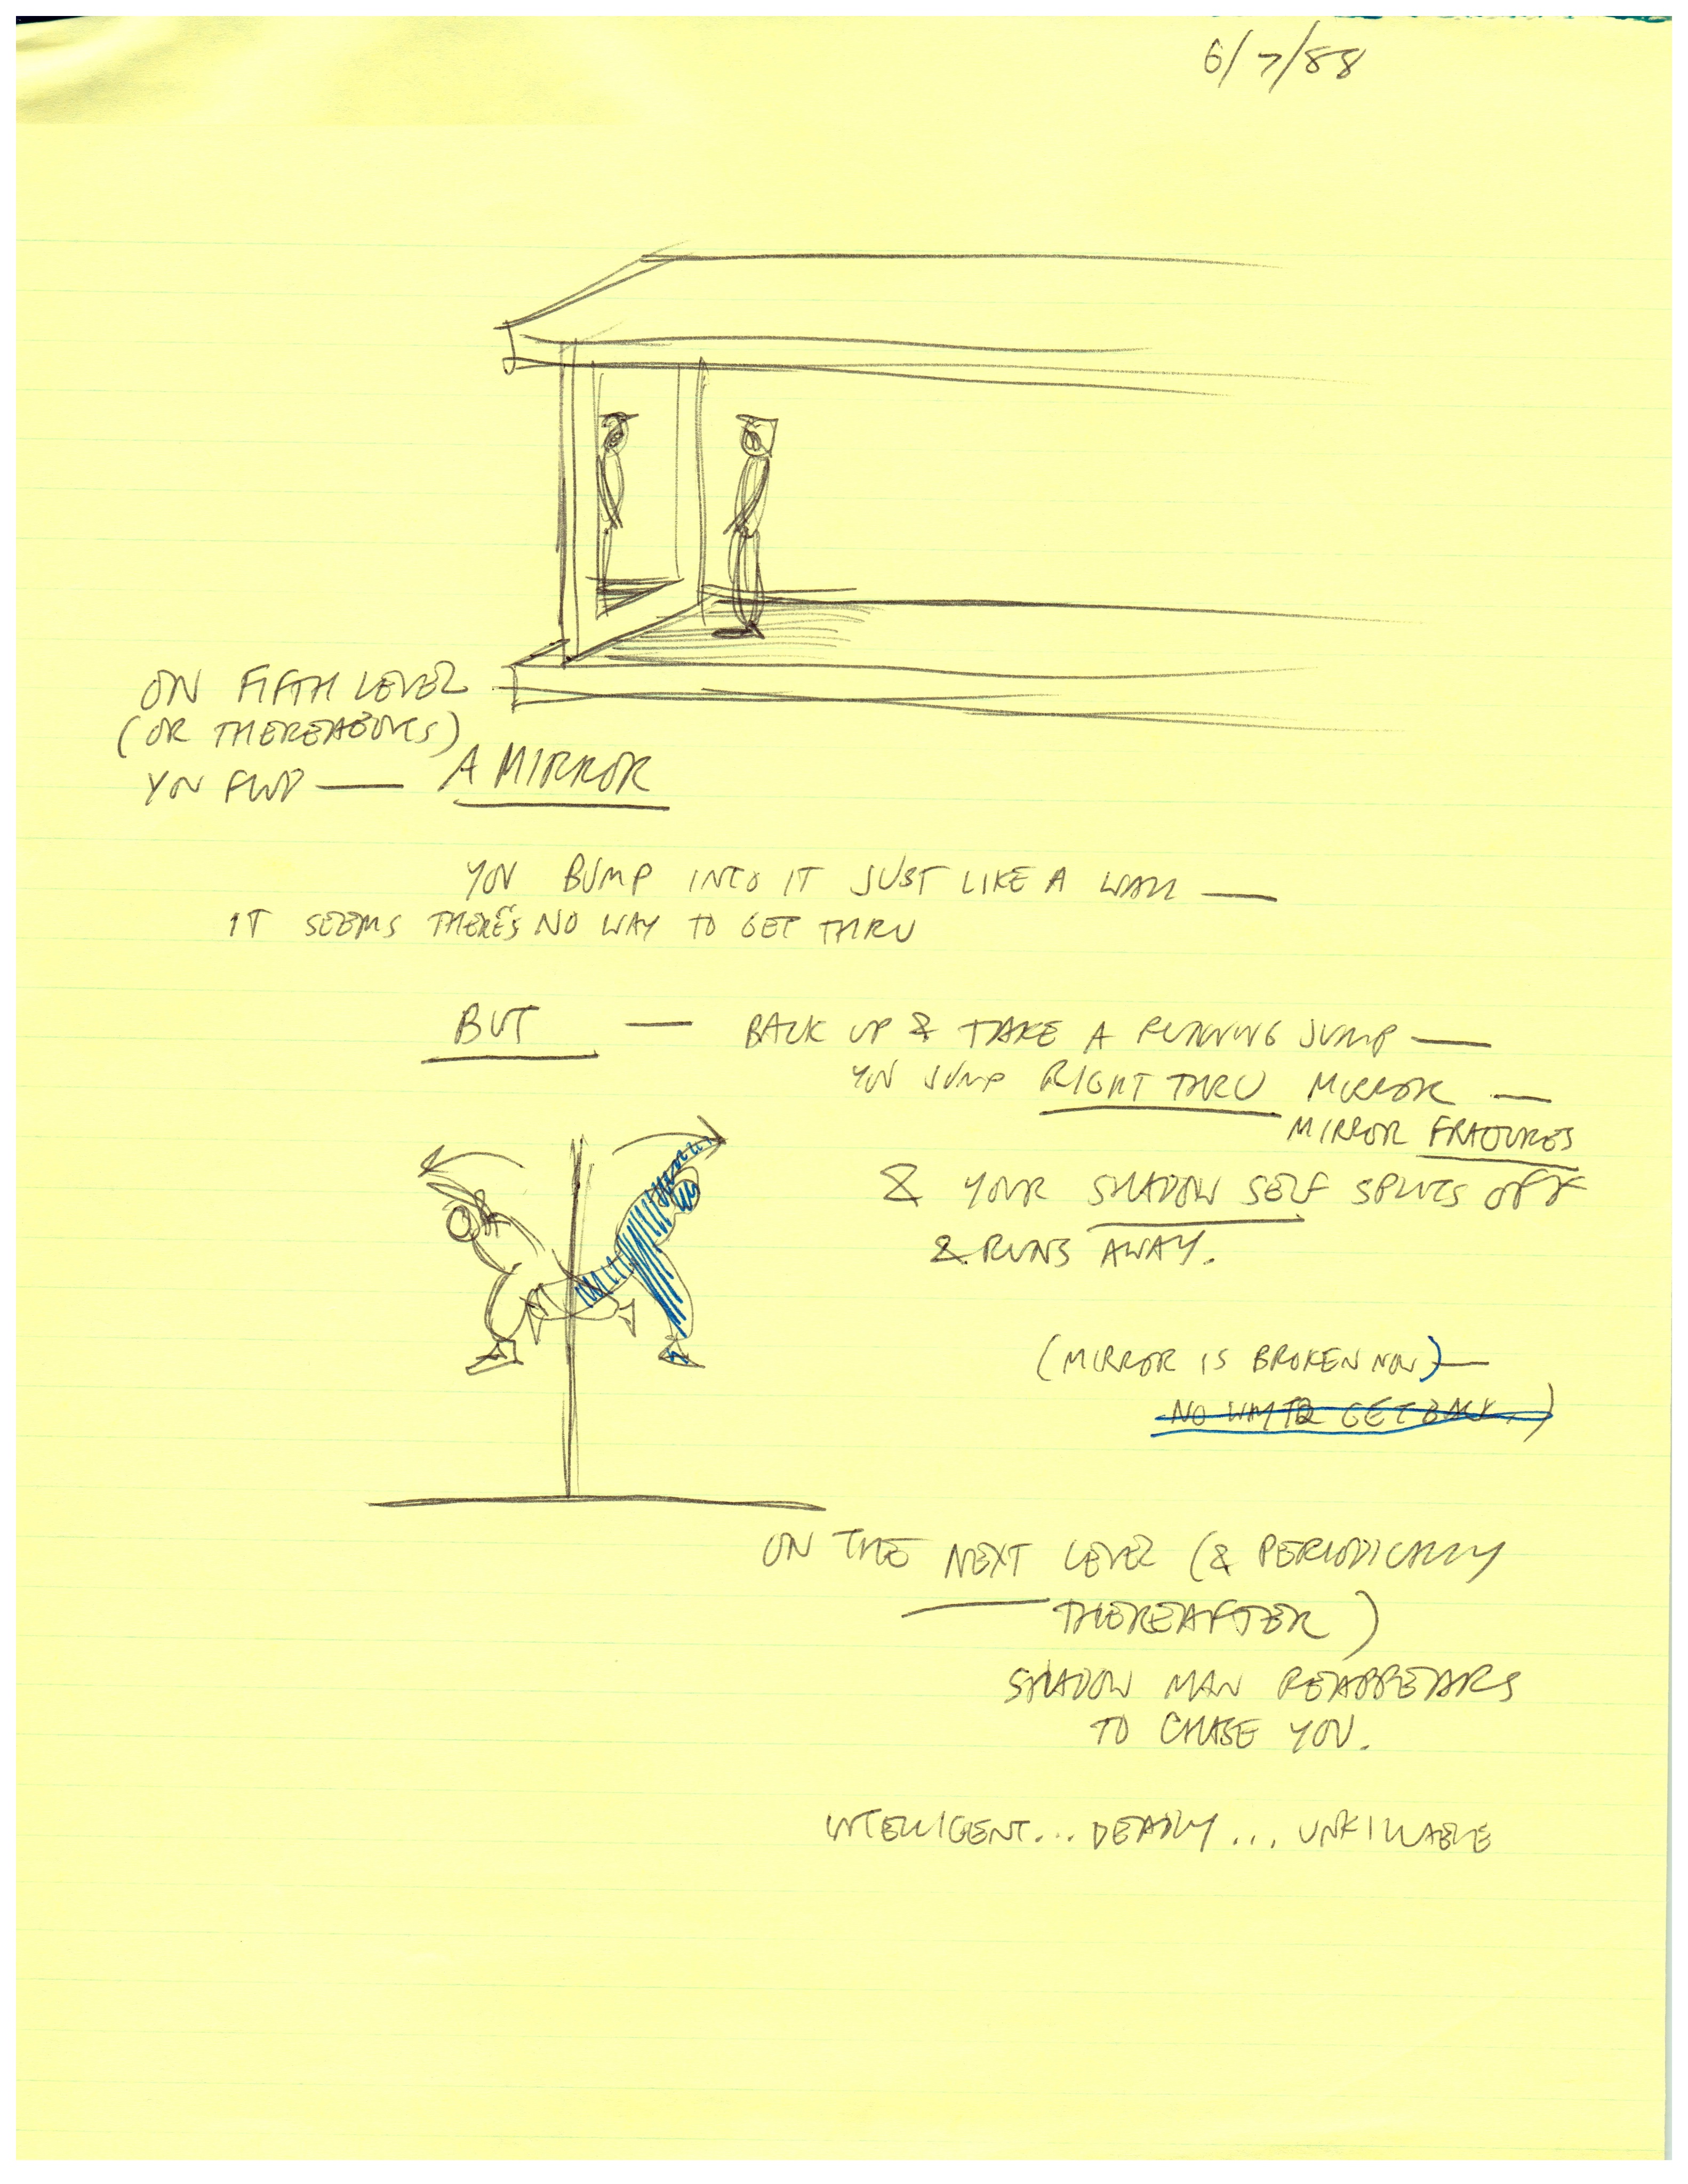 6/7/88
ON FIFTH LEVEL
(OR THEREABOUTS)
YOU FIND — A MIRROR
YOU BUMP INTO IT JUST LIKE A WALL —
IT SEEMS THERE'S NO WAY TO GET THRU
BUT — BACK UP & TAKE A RUNNING JUMP —
YOU JUMP RIGHT THRU MIRROR —
MIRROR FRACTURES
& YOUR SHADOW SELF SPLITS OFF
& RUNS AWAY.
(MIRROR IS BROKEN NOW) —
NO WAY TO GET BACK.)
ON THE NEXT LEVEL (& PERIODICALLY
THEREAFTER)
SHADOW MAN REAPPEARS
TO CHASE YOU.
INTELLIGENT... DEADLY... UNKILLABLE